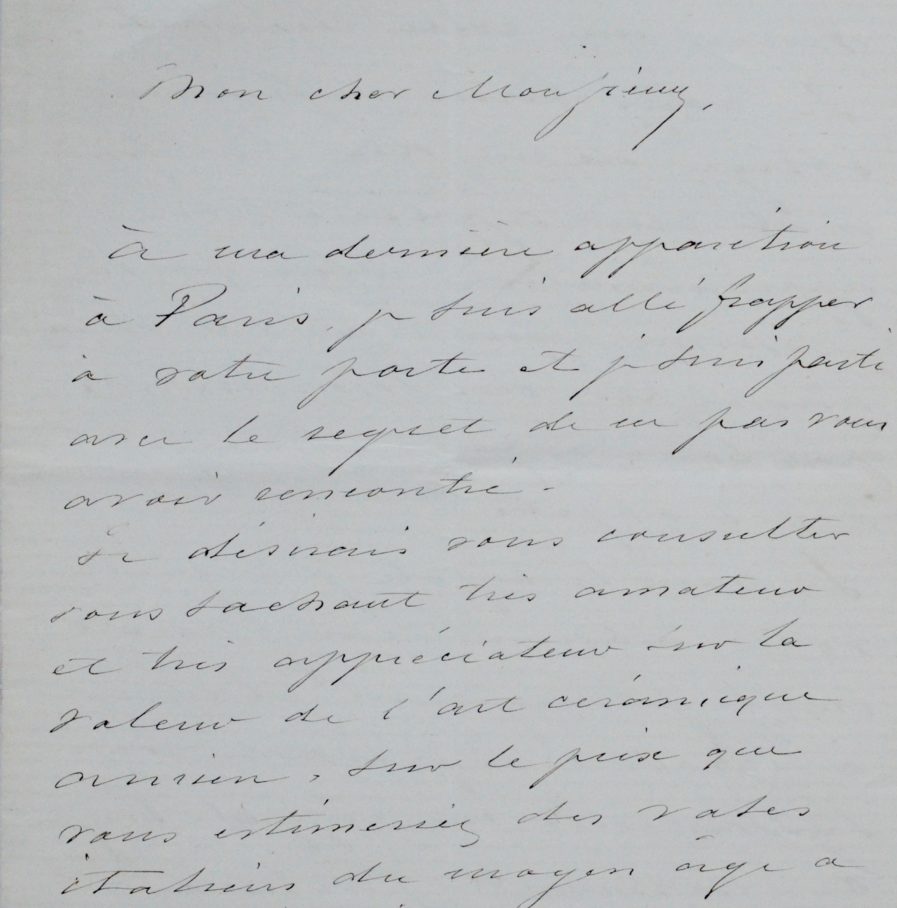 Mon cher Monsieur,
à ma dernière apparition
à Paris, je suis allé frapper
à votre porte et je suis parti
avec le regret de ne pas vous
avoir rencontré.
Je désirais vous consulter
vous sachant très amateur
et très appréciateur sur la
valeur de l'art céramique
ancien, sur le prix que
vous estimeriez des vases
italiens du moyen âge a